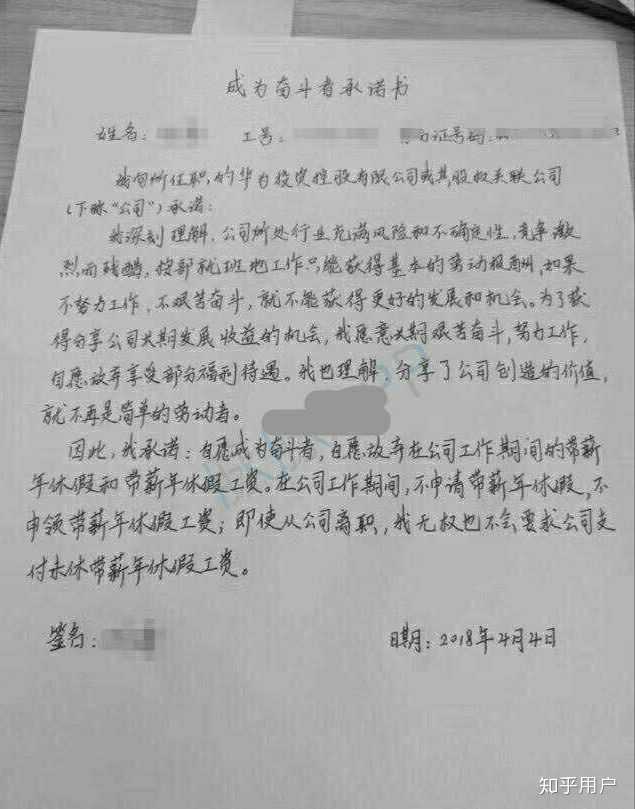 成为奋斗者承诺书
姓名: 工号: 证号码:
我向所任职的华为投资控股有限公司或其股权关联公司
(下称“公司”)承诺:
我深刻理解,公司所处行业充满风险和不确定性,竞争激
烈而残酷,按部就班地工作只能获得基本的劳动报酬,如果
不努力工作,不艰苦奋斗,就不能获得更好的发展和机会。为了获
得分享公司长期发展收益的机会,我愿意长期艰苦奋斗,努力工作,
自愿放弃享受部分福利待遇。我也理解,分享了公司创造的价值,
就不再是简单的劳动者。
因此,我承诺:自愿成为奋斗者,自愿放弃在公司工作期间的带薪
年休假和带薪年休假工资。在公司工作期间,不申请带薪年休假,不
申领带薪年休假工资;即使从公司离职,我无权也不会要求公司支
付未休带薪年休假工资。
签名: 日期:2018年4月4日
知乎用户